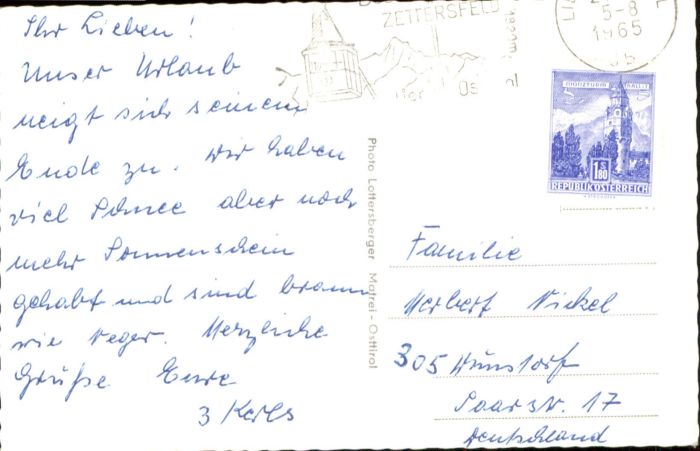 Ihr Lieben!
Unser Urlaub
neigt sich seinem
Ende zu. Wir haben
viel Schnee aber noch
mehr Sonnenschein
gehabt und sind braun
wie Neger. Herzliche
Grüße Eure
3 Kerls
ZETTERSFELD
5-8
1965
MÜNZTURM HALL I.T.
S 1.80
REPUBLIK ÖSTERREICH
Photo Lottersberger Matrei-Osttirol
Familie
Herbert Nickel
305 Wunstorf
Saarstr. 17
Deutschland